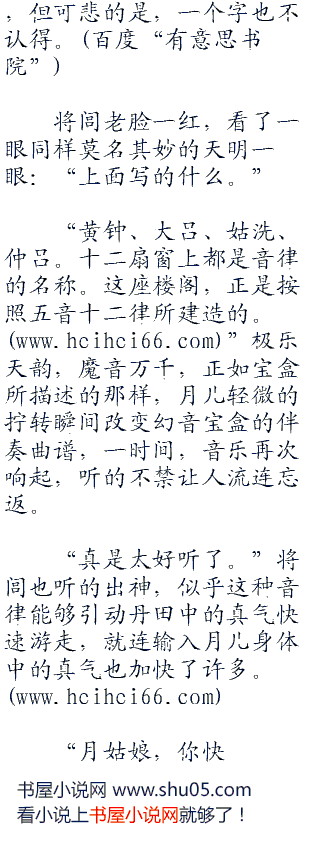 ，但可悲的是，一个字也不
认得。(百度“有意思书
院”)
将闾老脸一红，看了一
眼同样莫名其妙的天明一
眼：“上面写的什么。”
“黄钟、大吕、姑洗、
仲吕。十二扇窗上都是音律
的名称。这座楼阁，正是按
照五音十二律所建造的。
(www.hcihci66.com)”极乐
天韵，魔音万千，正如宝盒
所描述的那样，月儿轻微的
拧转瞬间改变幻音宝盒的伴
奏曲谱，一时间，音乐再次
响起，听的不禁让人流连忘
返。
“真是太好听了。”将
闾也听的出神，似乎这种音
律能够引动丹田中的真气快
速游走，就连输入月儿身体
中的真气也加快了许多。
(www.hcihci66.com)
“月姑娘，你快
书屋小说网 www.shu05.com
看小说上书屋小说网就够了！